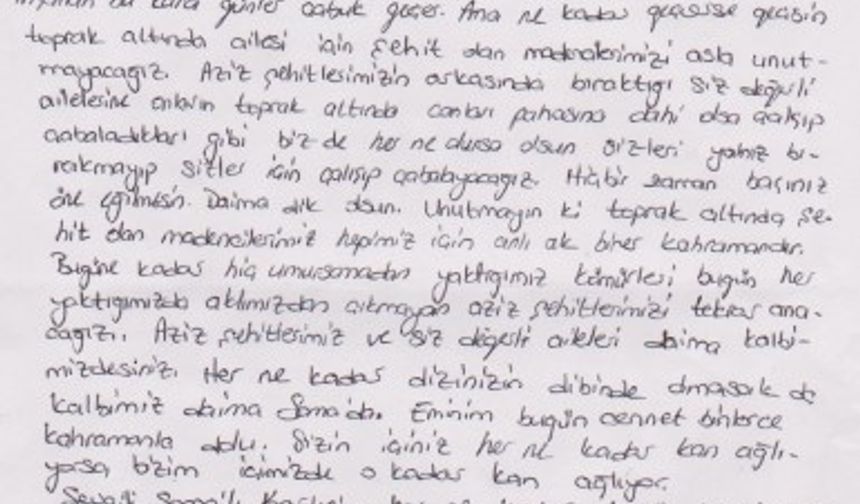 bu kara günler çabuk geçer. Ama ne kadar geçerse geçsin
toprak altında ailesi için şehit olan madencilerimizi asla unut-
mayacağız. Aziz şehitlerimizin arkasında bıraktığı siz değerli
ailelerine onların toprak altında canları pahasına dahi olsa çalışıp
çabaladıkları gibi biz de her ne olursa olsun sizleri yalnız bı-
rakmayıp sizler için çalışıp çabalayacağız. Hiçbir zaman başınız
öne eğilmesin. Daima dik olsun. Unutmayın ki toprak altında şe-
hit olan madencilerimiz hepimiz için anlı ak birer kahramandır.
Bugüne kadar hiç umursamadan yaktığımız kömürleri bugün her
yaktığımızda aklımızdan çıkmayan aziz şehitlerimizi tekrar ana-
cağız. Aziz şehitlerimiz ve siz değerli aileleri daima kalbi-
mizdesiniz. Her ne kadar dizinizin dibinde olmasak da
kalbimiz daima Soma'da. Eminim bugün cennet binlerce
kahramanla doldu. Sizin içiniz her ne kadar kan ağlı-
yorsa bizim içimizde o kadar kan ağlıyor.
Sevgili Soma'lı